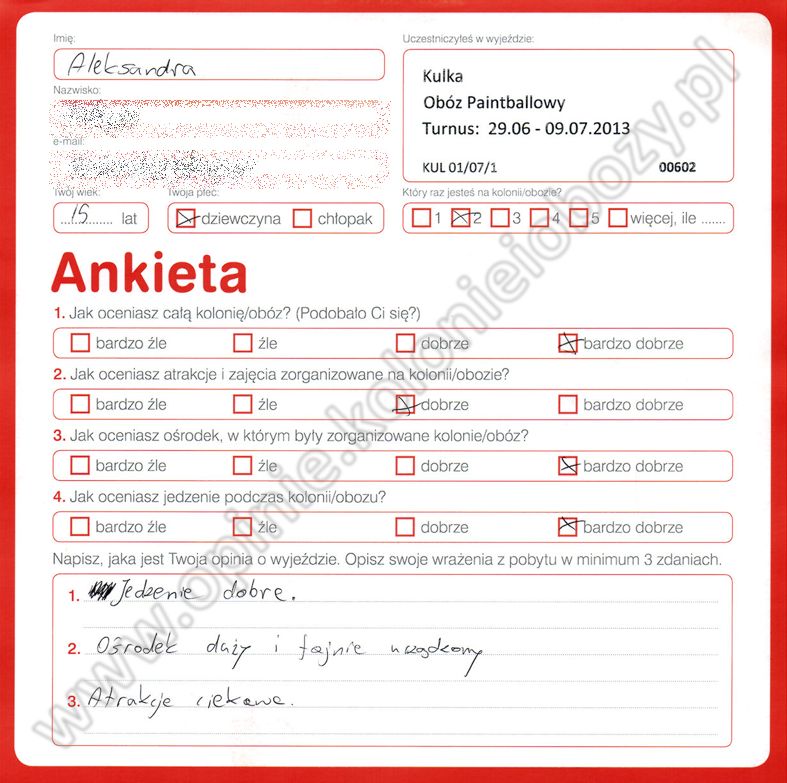 Imię:
Uczestniczyłeś w wyjeździe:
Aleksandra
Kulka
Obóz Paintballowy
Turnus: 29.06 - 09.07.2013
KUL 01/07/1 00602
Nazwisko:
e-mail:
Twój wiek:
Twoja płeć:
Który raz jesteś na kolonii/obozie?
15 lat
dziewczyna chłopak
1 2 3 4 5 więcej, ile .......
Ankieta
1. Jak oceniasz całą kolonię/obóz? (Podobało Ci się?)
bardzo źle źle dobrze bardzo dobrze
2. Jak oceniasz atrakcje i zajęcia zorganizowane na kolonii/obozie?
bardzo źle źle dobrze bardzo dobrze
3. Jak oceniasz ośrodek, w którym były zorganizowane kolonie/obóz?
bardzo źle źle dobrze bardzo dobrze
4. Jak oceniasz jedzenie podczas kolonii/obozu?
bardzo źle źle dobrze bardzo dobrze
Napisz, jaka jest Twoja opinia o wyjeździe. Opisz swoje wrażenia z pobytu w minimum 3 zdaniach.
1. Jedzenie dobre.
2. Ośrodek duży i fajnie
3. Atrakcje ciekawe.
www.opinie.kolonieiobozy.pl